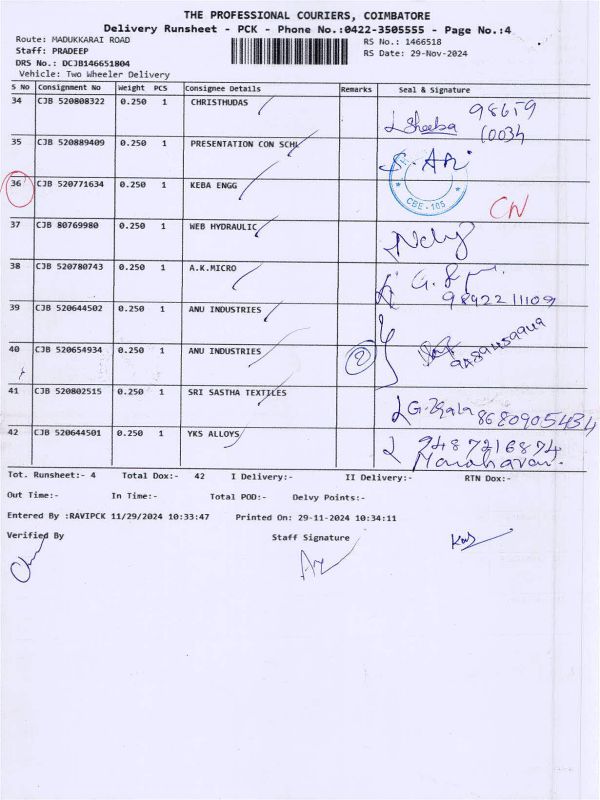 THE PROFESSIONAL COURIERS, COIMBATORE
Delivery Runsheet - PCK - Phone No.:0422-3505555 - Page No.:4
Route: MADUKKARAI ROAD
RS No.: 1466518
Staff: PRADEEP
RS Date: 29-Nov-2024
DRS No.: DCJB146651804
Vehicle: Two Wheeler Delivery
S No Consignment No Weight PCS Consignee Details Remarks Seal & Signature
34 CJB 520808322 0.250 1 CHRISTHUDAS Sheeba 98659 10034
35 CJB 520889409 0.250 1 PRESENTATION CON SCHL
36 CJB 520771634 0.250 1 KEBA ENGG CBE - 105 CN
37 CJB 80769980 0.250 1 WEB HYDRAULIC
38 CJB 520780743 0.250 1 A.K.MICRO 9842211109
39 CJB 520644502 0.250 1 ANU INDUSTRIES
40 CJB 520654934 0.250 1 ANU INDUSTRIES 2
41 CJB 520802515 0.250 1 SRI SASTHA TEXTILES 8680905434
42 CJB 520644501 0.250 1 YKS ALLOYS 9487216874
Manoharan.
Tot. Runsheet:- 4 Total Dox:- 42 I Delivery:- II Delivery:- RTN Dox:-
Out Time:- In Time:- Total POD:- Delvy Points:-
Entered By :RAVIPCK 11/29/2024 10:33:47 Printed On: 29-11-2024 10:34:11
Verified By Staff Signature